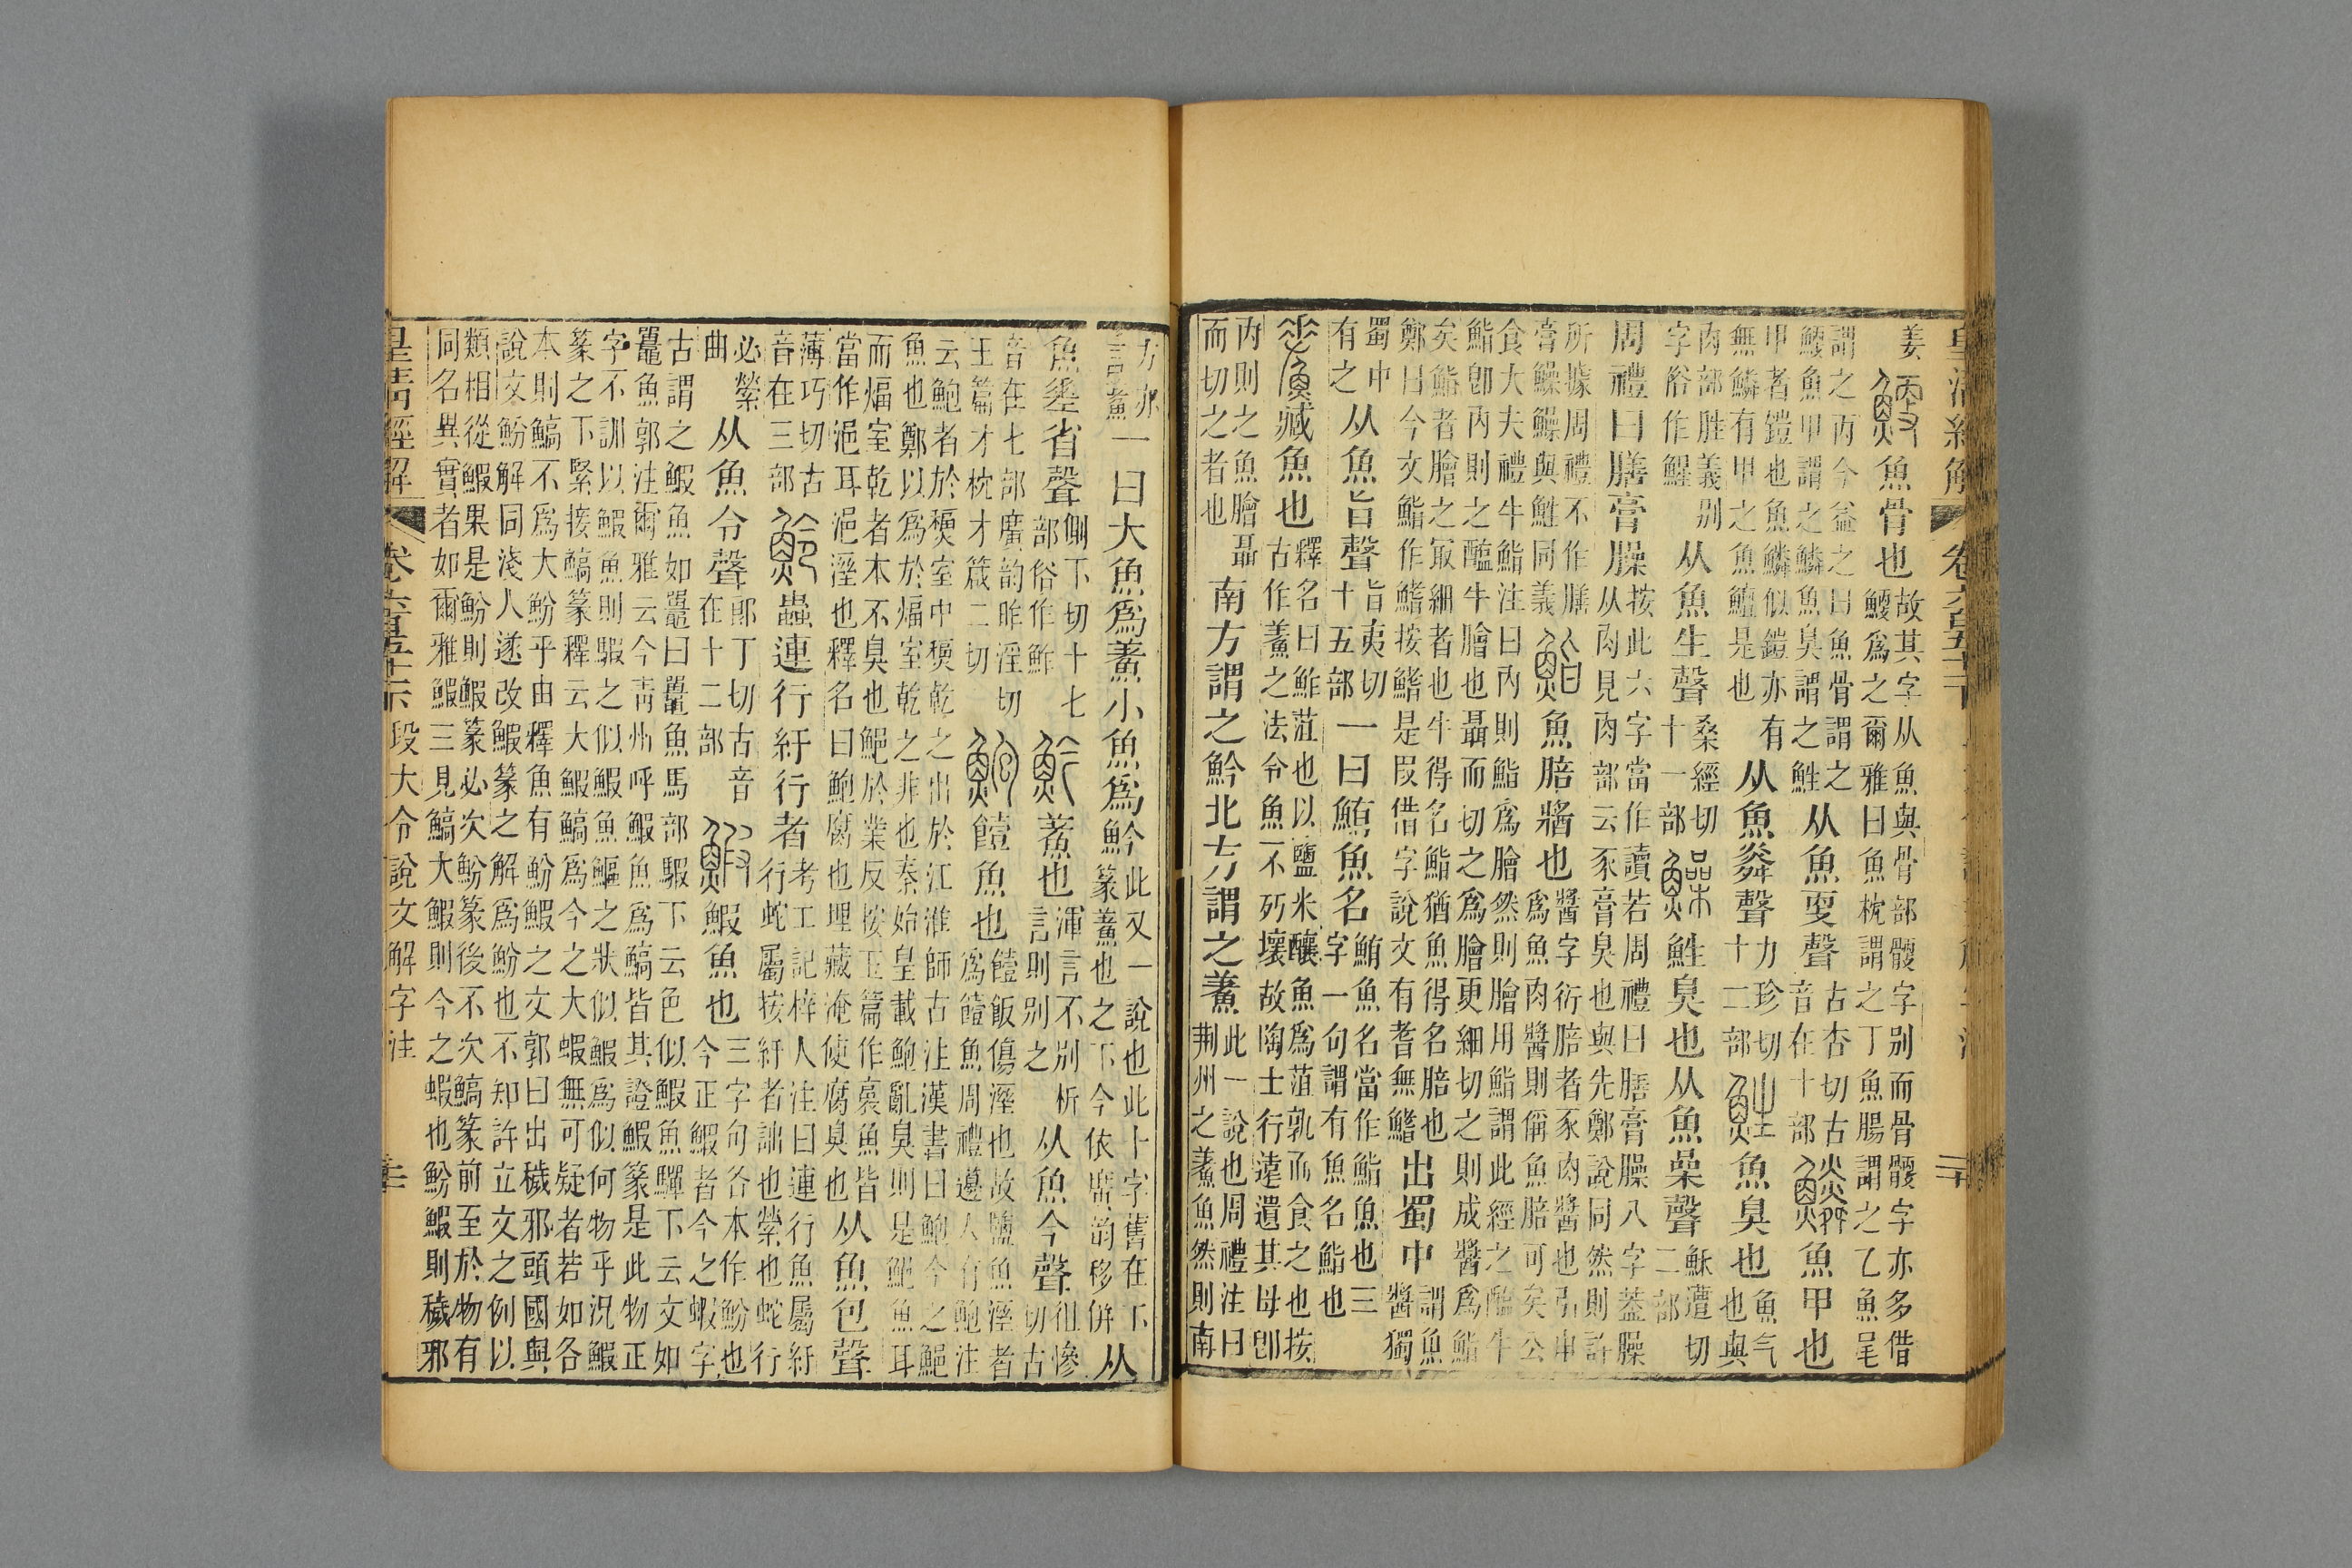 姜 魚骨也 故其字从魚與骨部骾字别而骨骾字亦多借
鯁爲之爾雅曰魚枕謂之丁魚腸謂之乙魚尾
謂之丙今益之曰魚骨謂之
鯁魚甲謂之鱗魚臭謂之鮏 从魚㪅聲 古杏切古音在十部 魚甲也
甲者鎧也魚鱗似鎧亦有
無鱗有甲之魚鱣是也 从魚粦聲 力珍切十二部 魚臭也 魚气也與
肉部胜義别
字俗作鯹 从魚生聲 桑經切十一部 鮏臭也从魚喿聲 穌遭切二部
周禮曰膳膏臊 按此六字當作讀若周禮曰膳膏臊八字葢臊
从肉見肉部云豕膏臭也與先鄭說同然則許
所據周禮不作膳
膏鱢鱢與鮏同義 魚䏽醬也 醬字衍䏽者豕肉醬也引申
爲魚肉醬則偁魚䏽可矣公
食大夫禮牛鮨注曰内則鮨爲膾然則膾用鮨謂此經之醢牛
鮨卽内則之醢牛膾也聶而切之爲膾更細切之則成醬爲鮨
矣鮨者膾之冣細者也牛得名鮨猶魚得名䏽也
鄭曰今文鮨作鰭按鰭是叚借字說文有耆無鰭 出蜀中 謂魚醬獨
蜀中
有之 从魚旨聲 旨夷切十五部 一曰鮪魚名 鮪魚名當作鮨魚也三
字一句謂有魚名鮨也
藏魚也 釋名曰鮓葅也以鹽米釀魚爲菹孰而食之也按
古作鮺之法令魚不㱙壞故陶士行遠遺其母卽
内則之魚膾聶
而切之者也 南方謂之䰼北方謂之鮺 此一說也周禮注曰
荆州之鮺魚然則南
皇清經解 卷六百五十二下
方亦
言鮺 一曰大魚爲鮺小魚爲䰼 此又一說也此十字舊在下
篆鮺也之下今依廣韵移併 从
魚𢀩省聲 側下切十七部俗作鮓 鮺也 渾言不别析言則别之 从魚今聲 徂慘切古
音在七部廣韵昨淫切
玉篇才枕才箴二切 饐魚也 饐飯傷溼也故鹽魚溼者
爲饐魚周禮籩人有鮑注
云鮑者於䅵室中䅵乾之出於江淮師古注漢書曰鮑今之䱒
魚也鄭以爲於煏室乾之非也秦始皇載鮑亂臭則是䱒魚耳
而煏室乾者本不臭也䱒於業反按玉篇作裛魚皆
當作浥耳浥溼也釋名曰鮑腐也埋藏淹使腐臭也 从魚包聲
薄巧切古
音在三部 蟲連行紆行者 考工記梓人注曰連行魚屬紆
行蛇屬按紆者詘也縈也蛇行
必縈
曲 从魚令聲 郎丁切古音在十二部 鰕魚也 三字句各本作魵也
今正鰕者今之蝦字
古謂之鰕魚如鼉曰鼉魚馬部騢下云色似鰕魚驒下云文如
鼉魚郭注爾雅云今靑州呼鰕魚爲鰝皆其證鰕篆是此物正
字不訓以鰕魚則騢之似鰕魚鰸之狀似鰕爲似何物乎況鰕
篆之下緊接鰝篆釋云大鰕鰝爲今之大蝦無可疑者若如各
本則鰝不爲大魵乎由釋魚有魵鰕之文郭曰出穢邪頭國與
說文魵解同淺人遂改鰕篆之解爲魵也不知許立文之例以
類相從鰕果是魵則鰕篆必次魵篆後不次鰝篆前至於物有
同名異實者如爾雅鰕三見鰝大鰕則今之蝦也魵鰕則穢邪
皇清經解 卷六百五十二下 段大令說文解字注